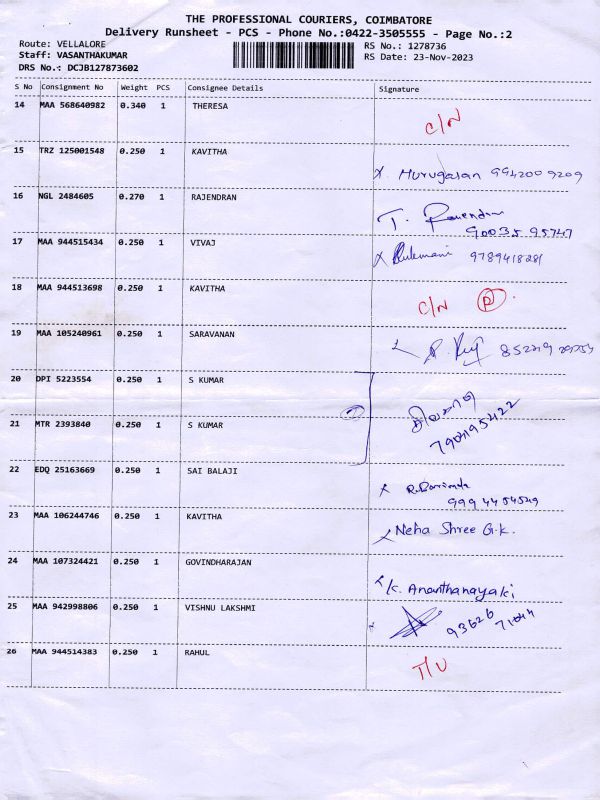 THE PROFESSIONAL COURIERS, COIMBATORE
Delivery Runsheet - PCS - Phone No.:0422-3505555 - Page No.:2
Route: VELLALORE RS No.: 1278736
Staff: VASANTHAKUMAR RS Date: 23-Nov-2023
DRS No.: DCJB127873602
S No Consignment No Weight PCS Consignee Details Signature
14 MAA 568640982 0.340 1 THERESA C/N
15 TRZ 125001548 0.250 1 KAVITHA
x. Murugasan 9942009209
16 NGL 2484605 0.270 1 RAJENDRAN
T.
90035 95747
17 MAA 944515434 0.250 1 VIVAJ x Rukmani 9789418281
18 MAA 944513698 0.250 1 KAVITHA C/N P.
19 MAA 105240961 0.250 1 SARAVANAN
20 DPI 5223554 0.250 1 S KUMAR
21 MTR 2393840 0.250 1 S KUMAR
22 EDQ 25163669 0.250 1 SAI BALAJI
23 MAA 106244746 0.250 1 KAVITHA Neha Shree G.K.
24 MAA 107324421 0.250 1 GOVINDHARAJAN
K. Ananthanayaki
25 MAA 942998806 0.250 1 VISHNU LAKSHMI 93626 71044
26 MAA 944514383 0.250 1 RAHUL T/U